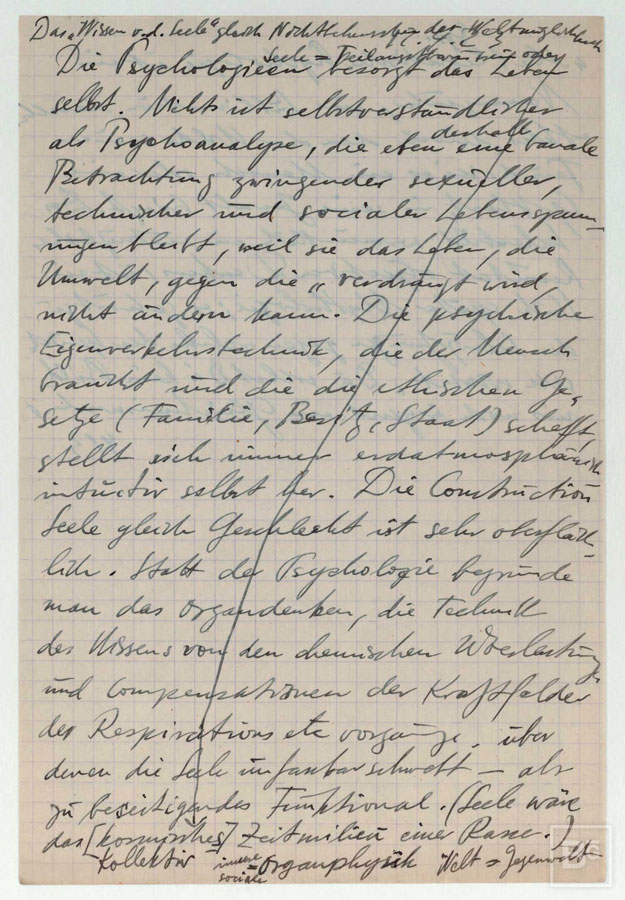 Das "Wissen v. d. Seele" gleich Nichtbeherrschung der
Seele = Teilangst
Die Psychologieen besorgt das Leben
selbst. Nichts ist selbstverständlicher
als Psychoanalyse, die eben deshalb eine banale
Betrachtung zwingender sexueller,
technischer und socialer Lebensspan-
nungen bleibt, weil sie das Leben, die
Umwelt, gegen die „verdrängt wird,
nicht ändern kann. Die psychische
Eigenverkehrstechnik, die der Mensch
braucht und die die ethischen Ge-
setze (Familie, Besitz, Staat) schafft,
stellt sich immer erdatmosphärisch
intuitiv selbst her. Die Construction
Seele gleich Geschlecht ist sehr oberfläch-
lich. Statt der Psychologie begründe
man das Organdenken, die Technik
des Wissens von den chemischen
und Compensationen der Kraftfelder
der Respirations etc vorgänge, über
denen die Seele unfassbar schwebt – als
zu beseitigendes Funktional. (Seele wäre
das [kosmische] Zeitmilieu einer Rasse.)
Kollektiv – innere sociale Organphysik Welt = Gegenwelt